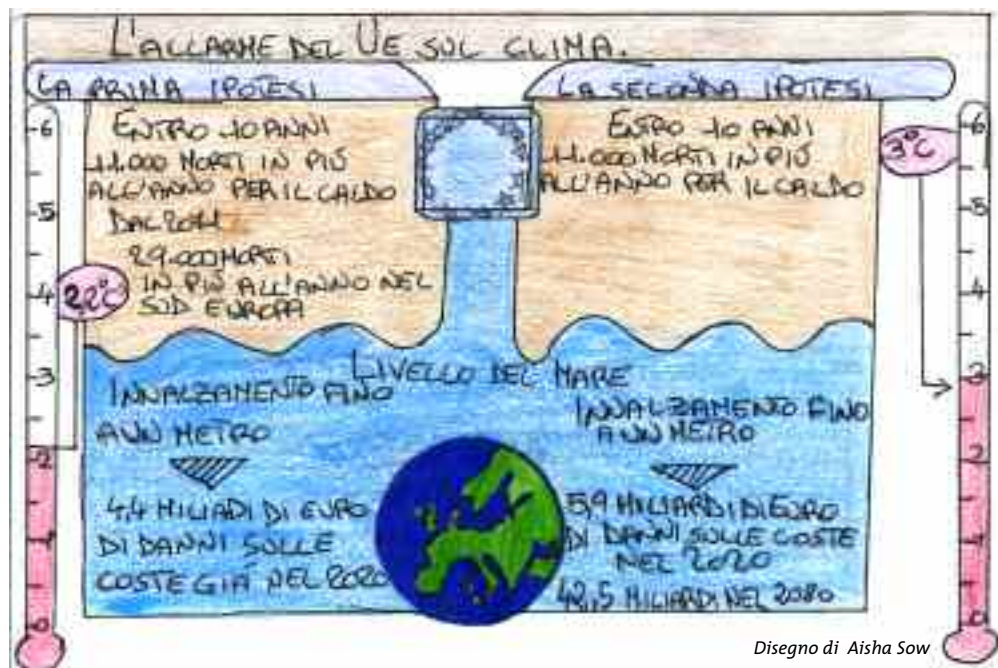 L'ALLARME DEL UE SUL CLIMA.
LA PRIMA IPOTESI
ENTRO 10 ANNI
11.000 MORTI IN PIÙ
ALL'ANNO PER IL CALDO
DAL 2011
29.000 MORTI
IN PIÙ ALL'ANNO NEL
SUD EUROPA
LA SECONDA IPOTESI
ENTRO 10 ANNI
11.000 MORTI IN PIÙ
ALL'ANNO PER IL CALDO
6
5
4
3
2
1
0
2,2°C
3°C
6
5
4
3
2
1
0
LIVELLO DEL MARE
INNALZAMENTO FINO
A UN METRO
4,4 MILIADI DI EURO
DI DANNI SULLE
COSTE GIÁ NEL 2020
INNALZAMENTO FINO
A UN METRO
5,9 MILIARDI DI EURO
DI DANNI SULLE COSTE
NEL 2020
42,5 MILIARDI NEL 2080
Disegno di Aisha Sow